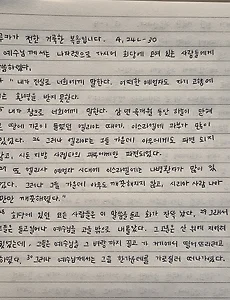 루카가 전한 거룩한 복음입니다. 4,24ㄴ-30
예수님께서는 나자렛으로 가시어 회당에 모여 있는 사람들에게
말씀하셨다.
" 내가 진실로 너희에게 말한다. 어떠한 예언자도 자기 고향에
환영을 받지 못한다.
내가 참으로 너희에게 말한다. 삼 년 육 개월 동안 하늘이 닫혀
땅에 기근이 들었던 엘리야 때에, 이스라엘에 과부가 많이
있었다. 26 그러나 엘리야는 그들 가운데 아무에게도 파견 되지
않고, 시돈 지방 사렙타의 과부에게만 파견되었다.
27 또 엘리사 예언자 시대에 이스라엘에는 나병환자가 많이 있
었다. 그러나 그들 가운데 아무도 깨끗해지지 않고, 시리아 사람 나아
만만 깨끗해졌다."
28 회당에 있던 모든 사람들은 이 말씀을 듣고 화가 잔뜩 났다. 29 그래서
그들은 들고일어나 예수님을 고을 밖으로 내몰았다. 그 고을은 산 위에 지어져
있었는데, 그들은 예수님을 그 벼랑까지 끌고 가 거기에서 떨어뜨리려고
하였다. 30 그러나 예수님께서는 그들 한가운데를 가로질러 떠나가셨다.